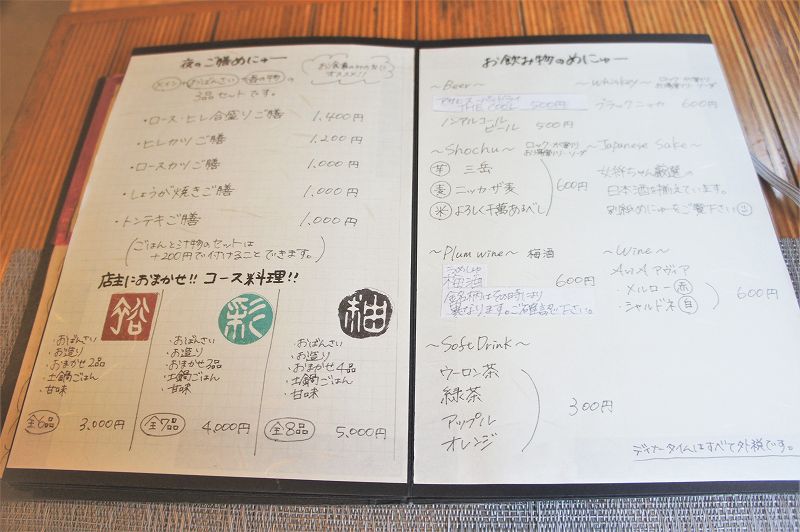 夜のご膳めにゅー
お食事のみの方に
オススメ!!
メイン+おばんさい+香の物の
3品セットです。
・ロース・ヒレ合盛りご膳 1,400円
・ヒレカツご膳 1,200円
・ロースカツご膳 1,000円
・しょうが焼きご膳 1,000円
・トンテキご膳 1,000円
(ごはんと汁物のセットは
+200円で付けることできます。)
店主におまかせ!! コース料理!!
裕
・おばんさい
・お造り
・おまかせ2品
・土鍋ごはん
・甘味
全6品 3,000円
彩
・おばんさい
・お造り
・おまかせ3品
・土鍋ごはん
・甘味
全7品 4,000円
柚
・おばんさい
・お造り
・おまかせ4品
・土鍋ごはん
・甘味
全8品 5,000円
お飲み物のめにゅー
~Beer~
THE COOL 500円
ノンアルコール
ビール 500円
~Whiskey~ ロック・水割り
お湯割り・ソーダ
ブラックニッカ 600円
~Shochu~ ロック・水割り
お湯割り・ソーダ
芋 三岳
麦 ニッカ・ザ麦
米 よろしく千萬あるべし
600円
~Japanese Sake~
厳選の
日本酒を揃えています。
別紙めにゅーをご覧下さい
~Plum wine~ 梅酒
うめしゅ
梅酒 600円
銘柄は
異なります。ご確認下さい。
~Wine~
AVIA アヴィア
・メルロー 赤
・シャルドネ 白
600円
~Soft Drink~
ウーロン茶
緑茶
アップル
オレンジ
300円
ディナータイムはすべて外税です。